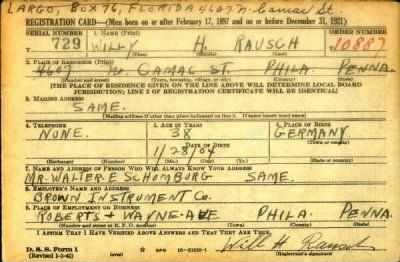 LARGO, BOX 76, FLORIDA 4607 N. Camac St.
REGISTRATION CARD—(Men born on or after February 17, 1897 and on or before December 31, 1921)
SERIAL NUMBER 1. NAME (Print) ORDER NUMBER
729 WILLY H. RAUSCH 10887
(First) (Middle) (Last)
2. PLACE OF RESIDENCE (Print)
4607 N. CAMAC ST. PHILA. PENNA.
(Number and street) (Town, township, village, or city) (County) (State)
[THE PLACE OF RESIDENCE GIVEN ON THE LINE ABOVE WILL DETERMINE LOCAL BOARD
JURISDICTION; LINE 2 OF REGISTRATION CERTIFICATE WILL BE IDENTICAL]
3. MAILING ADDRESS
SAME.
[Mailing address if other than place indicated on line 2. If same insert word same]
4. TELEPHONE 5. AGE IN YEARS 6. PLACE OF BIRTH
NONE. 38 GERMANY
DATE OF BIRTH (Town or county)
11/28/04
(Exchange) (Number) (Mo.) (Day) (Yr.) (State or country)
7. NAME AND ADDRESS OF PERSON WHO WILL ALWAYS KNOW YOUR ADDRESS
MR. WALTER E SCHOMBURG SAME.
8. EMPLOYER'S NAME AND ADDRESS
BROWN INSTRUMENT Co.
9. PLACE OF EMPLOYMENT OR BUSINESS
ROBERTS + WAYNE AVE PHILA. PENNA.
(Number and street or R. F. D. number) (Town) (County) (State)
I AFFIRM THAT I HAVE VERIFIED ABOVE ANSWERS AND THAT THEY ARE TRUE.
D. S. S. Form 1
(Revised 1-1-42) (over) Willy H Rausch
(Registrant's signature)